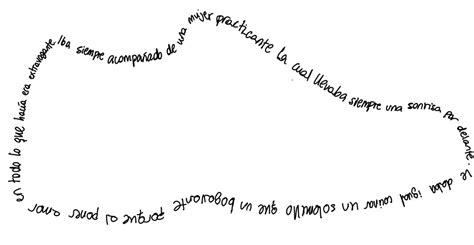 Iba siempre acompañado de una mujer practicante la cual llevaba siempre una sonrisa por delante. Le daba igual cocinar un solomillo que un bogavante porque al poner amor en todo lo que hacía era extravagante